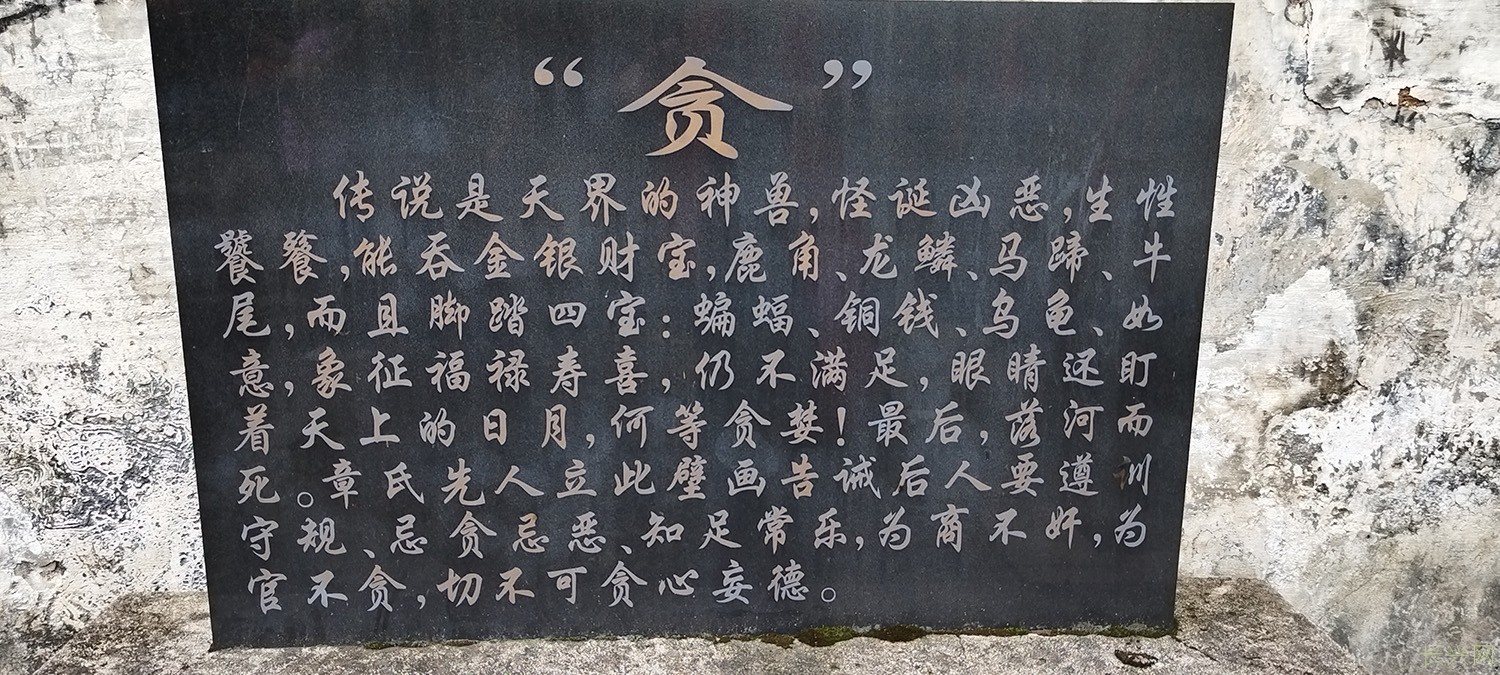 “贪”
传说是天界的神兽,怪诞凶恶,生性
饕餮,能吞金银财宝,鹿角、龙鳞、马蹄、牛
尾,而且脚踏四宝:蝙蝠、铜钱、乌龟、如
意,象征福禄寿喜,仍不满足,眼睛还盯
着天上的日月,何等贪婪!最后,落河而
死。章氏先人立此壁画告诫后人要遵训
守规、忌贪忌恶、知足常乐,为商不奸,为
官不贪,切不可贪心妄德。